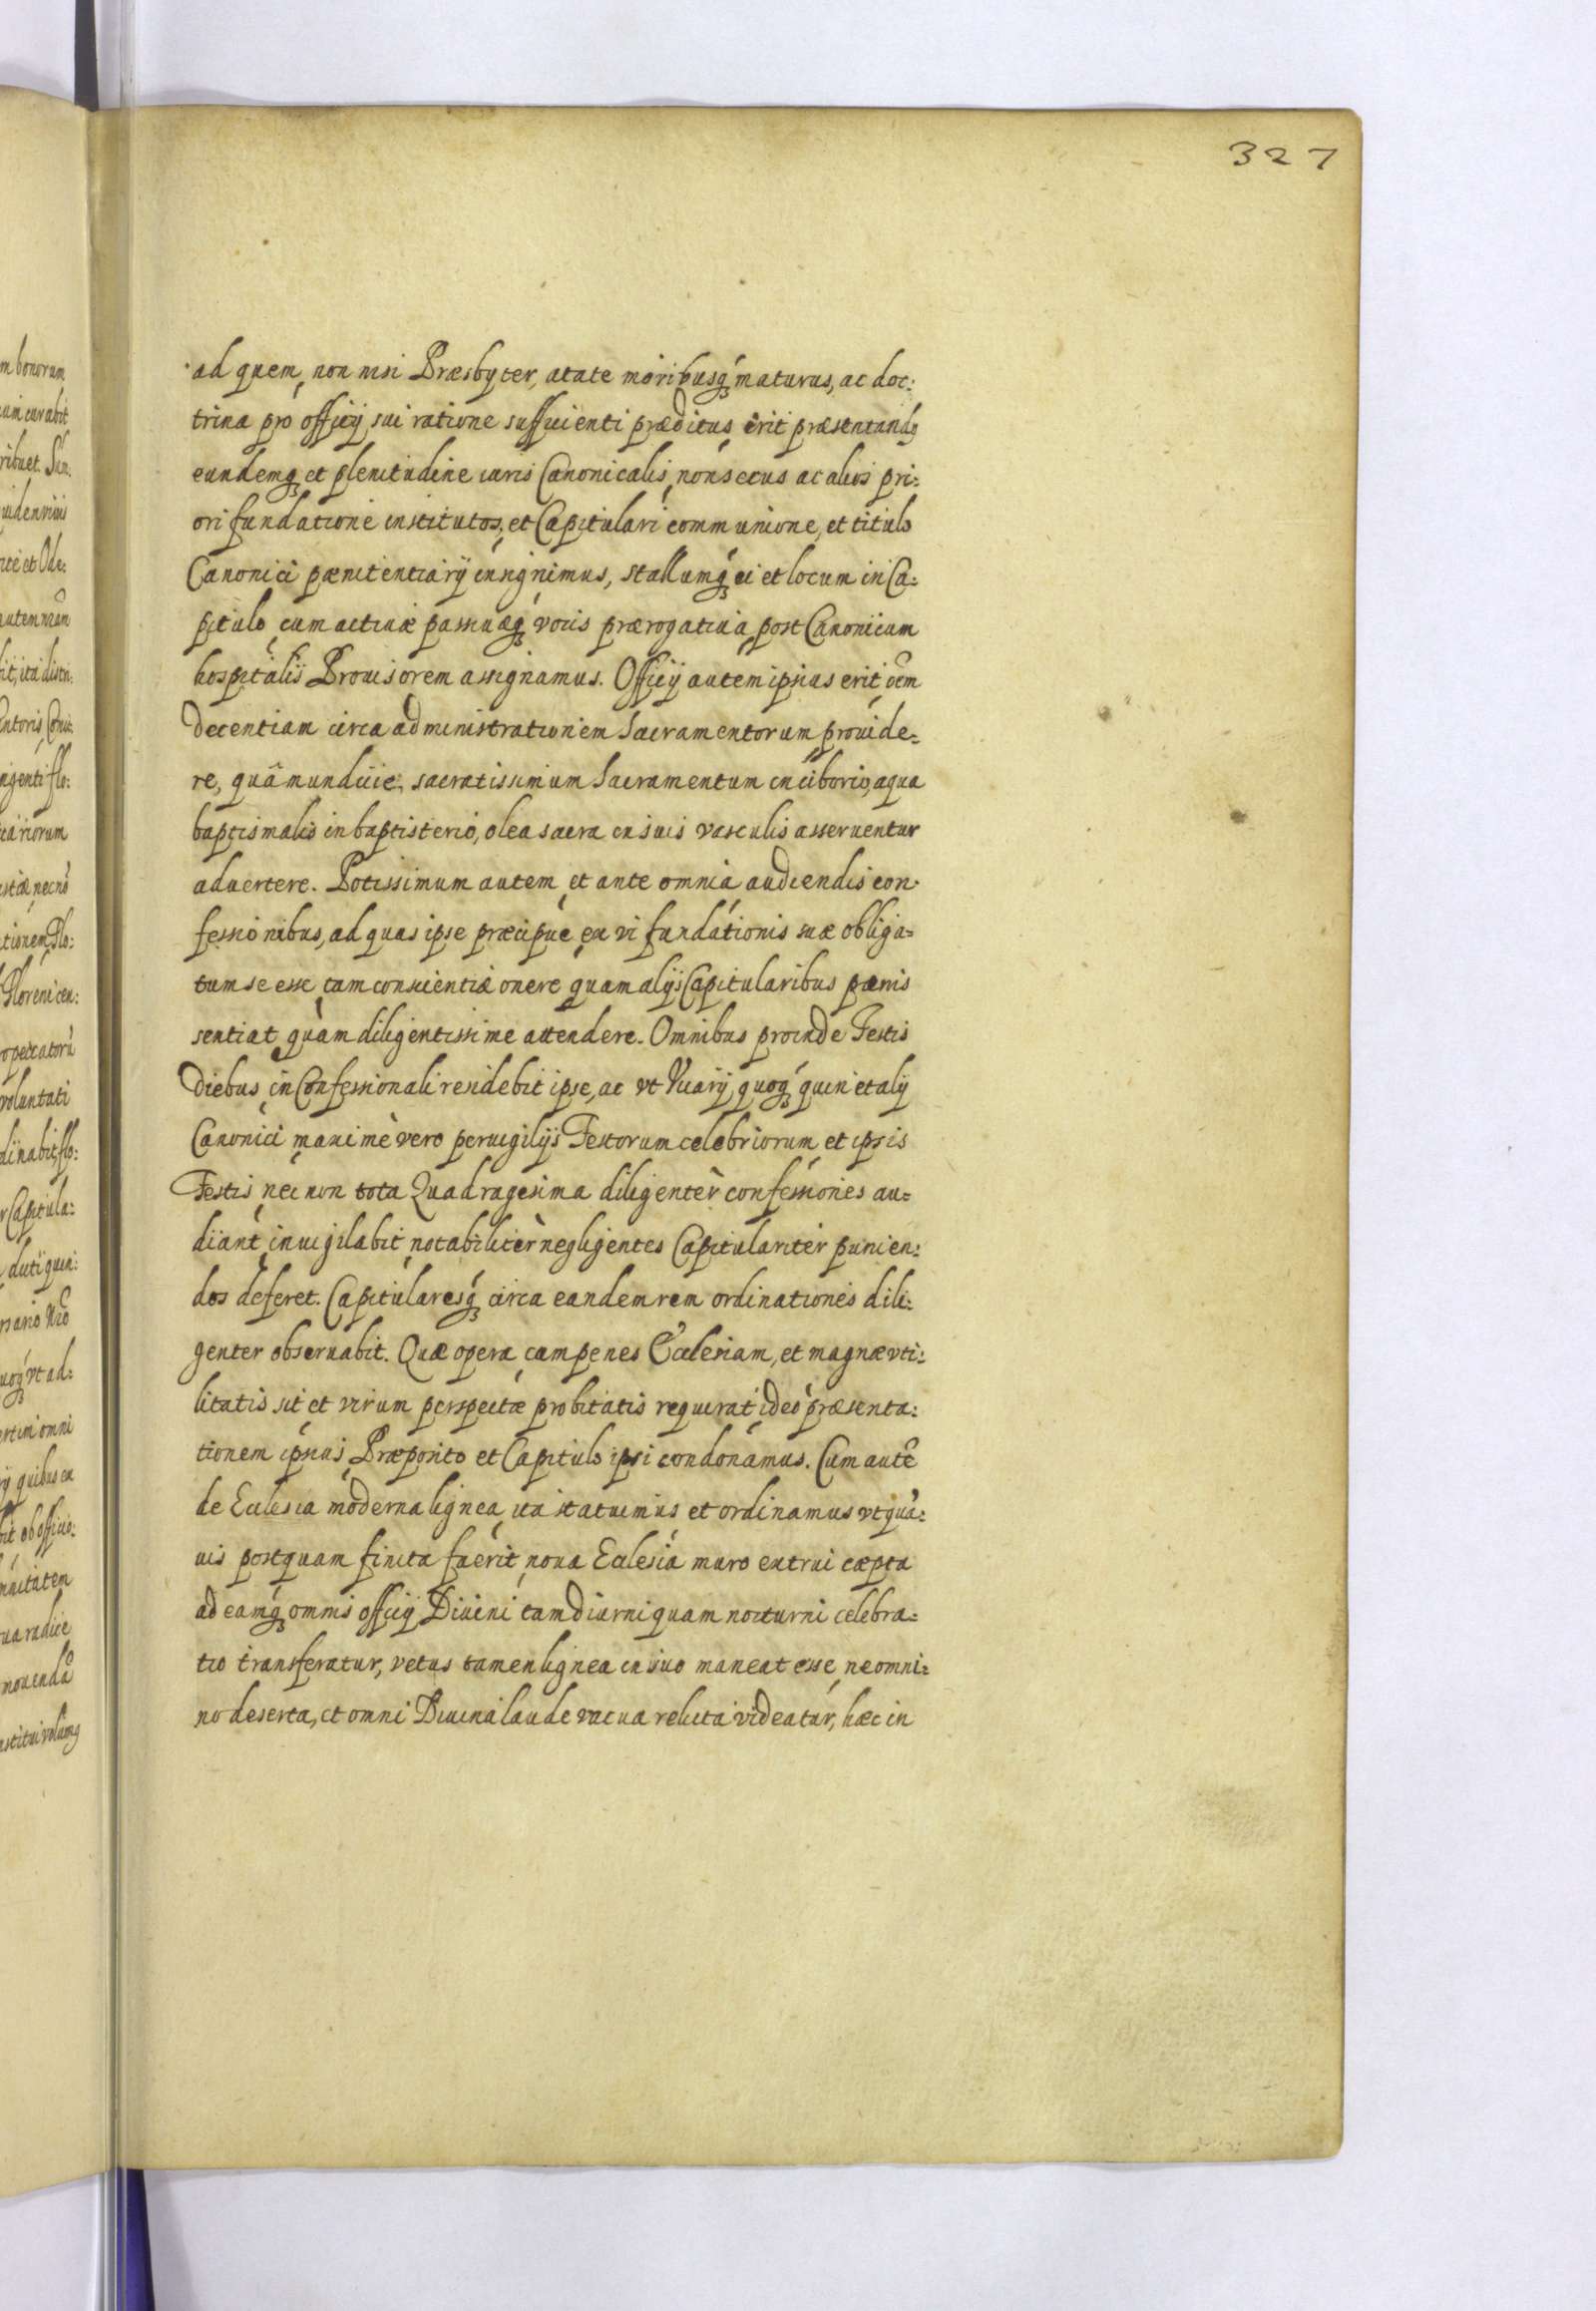 327
ad quem, non nisi Præsbyter, ætate moribusq́ꝫ maturus, ac doc:
trina pro officÿ sui ratione sufficienti præditus erit præsentandꝰ
eundemqꝫ et plenitudine iuris Canonicalis, non secus ac alios pri:
ori fundatione institutos, et Capitulari communione, et titulo
Canonici pænitentiarÿ insignimus, stallumq́ꝫ ei et locum in Ca:
pitulo cum actiuæ passiuæq́ꝫ vocis prærogatiua post Canonicum
hospitalis Prouisorem assignamus. Officÿ autem ipsius erit oẽm
decentiam circa administrationem Sacramentorum prouide:
re, quã munditie, sacratissimum Sacramentum in ciborio, aqua
baptismalis in baptisterio, olea sacra in suis vasculis asseruentur
aduertere. Potissimum autem et ante omnia audiendis con:
fessionibus, ad quas ipse præcipuè ex vi fundationis suæ obliga:
tum se esse tam conscientiæ onere quam alÿs Capitularibus pænis
sentiat quàm diligentissime attendere. Omnibus proinde Festis
diebus in Confessionali residebit ipse, ac vt Vicarÿ quoq́ꝫ quin et alÿ
Canonici maximè vero peruigilÿs Festorum celebriorum et ipsis
Festis, nec non tota Quadragesima diligentèr confessiones au:
diant, inuigilabit, notabilitèr negligentes Capitularitèr punien:
dos deferet. Capitularesq́ꝫ circa eandem rem ordinationes dili:
genter obseruabit. Quæ opera cum penes Ecclesiam, et magnæ vti:
litatis sit et virum perspectæ probitatis requirat ideò præsenta:
tionem ipsius Præposito et Capitulo ipsi condonamus. Cum autẽ
de Ecclesia moderna lignea, ita statuimus et ordinamus vt quã:
uis postquam finita fuerit noua Ecclesia muro extrui cæpta
ad eamq́ꝫ omnis officÿ Diuini tam diurni quam nocturni celebra:
tio transferatur, vetus tamen lignea in suo maneat esse, ne omni:
no deserta, et omni Diuina laude vacua relicta videatur, hæc in